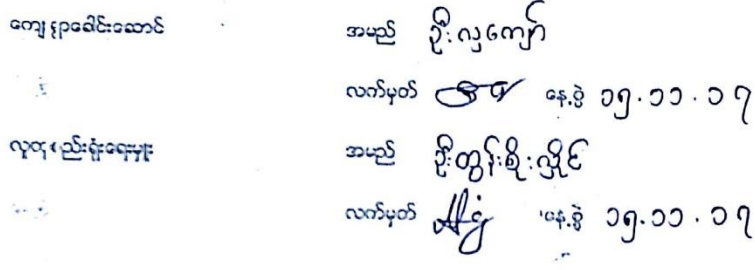 ကျေးရွာခေါင်းဆောင် အမည် ဦးလှကျော်
လက်မှတ် နေ့စွဲ ၁၅.၁၁.၁၇
စည်းရုံးရေးမှူး အမည် ဦးထွန်းစိုးလှိုင်
လက်မှတ် နေ့စွဲ ၁၅.၁၁.၁၇